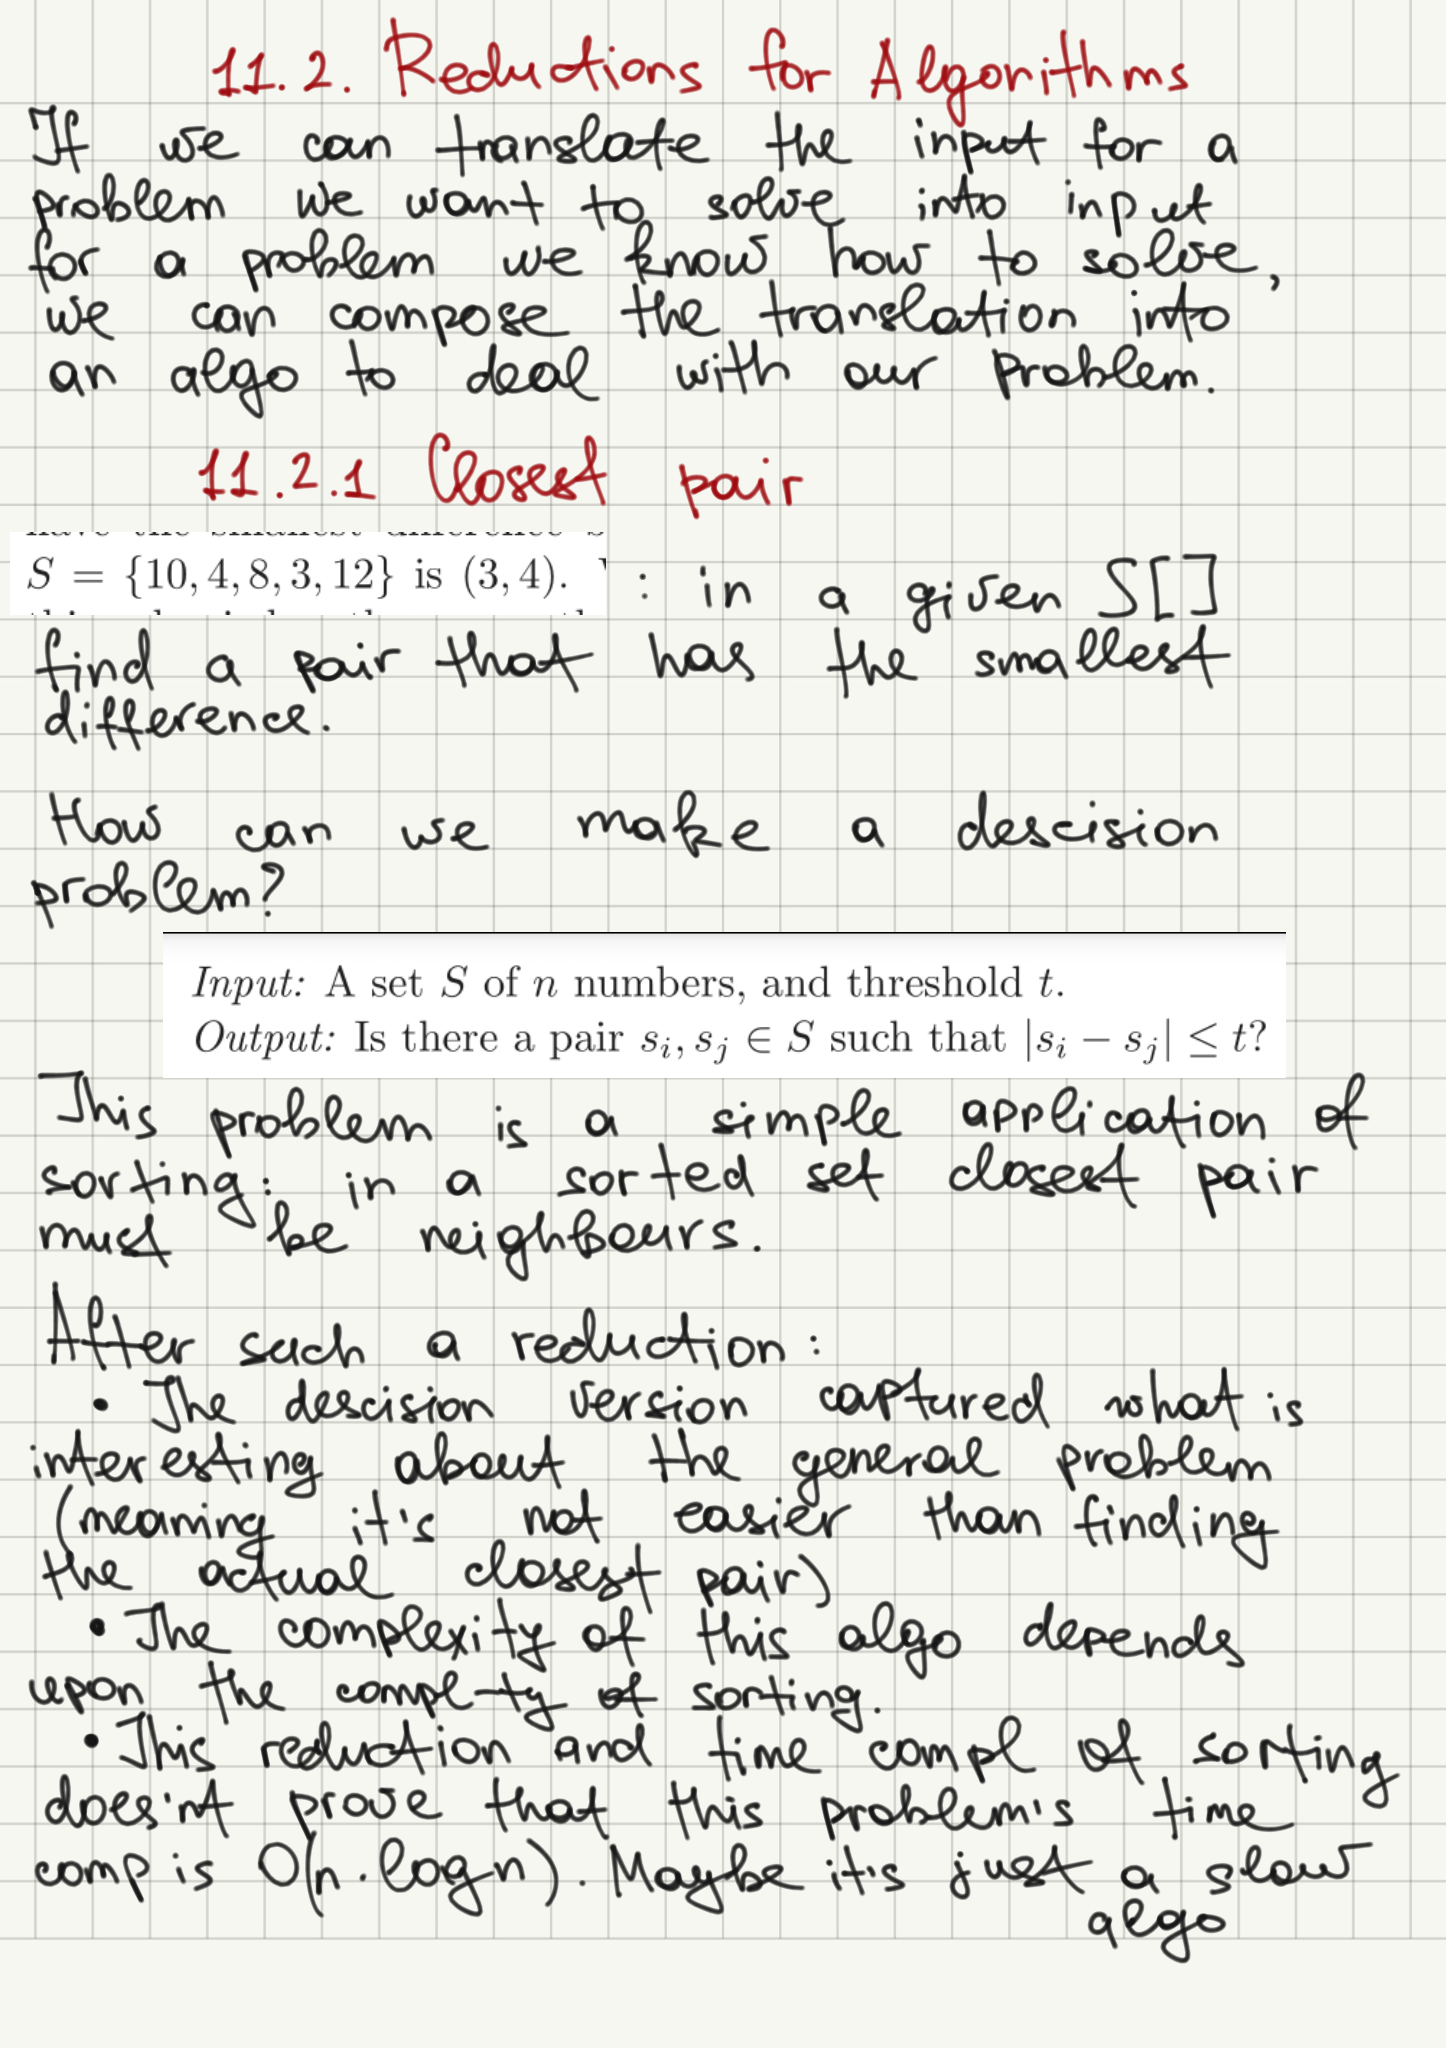 11.2. Reductions for Algorithms
If we can translate the input for a
problem we want to solve into input
for a problem we know how to solve,
we can compose the translation into
an algo to deal with our problem.
11.2.1 Closest pair
have the smallest difference
S = {10, 4, 8, 3, 12} is (3, 4). : in a given S[]
find a pair that has the smallest
difference.
How can we make a descision
problem?
Input: A set S of n numbers, and threshold t.
Output: Is there a pair sᵢ, sⱼ ∈ S such that |sᵢ − sⱼ| ≤ t?
This problem is a simple application of
sorting: in a sorted set closest pair
must be neighbours.
After such a reduction:
• The descision version captured what is
interesting about the general problem
(meaning it's not easier than finding
the actual closest pair)
• The complexity of this algo depends
upon the compl-ty of sorting.
• This reduction and time compl of sorting
does'nt prove that this problem's time
comp is O(n·logn). Maybe it's just a slow
algo